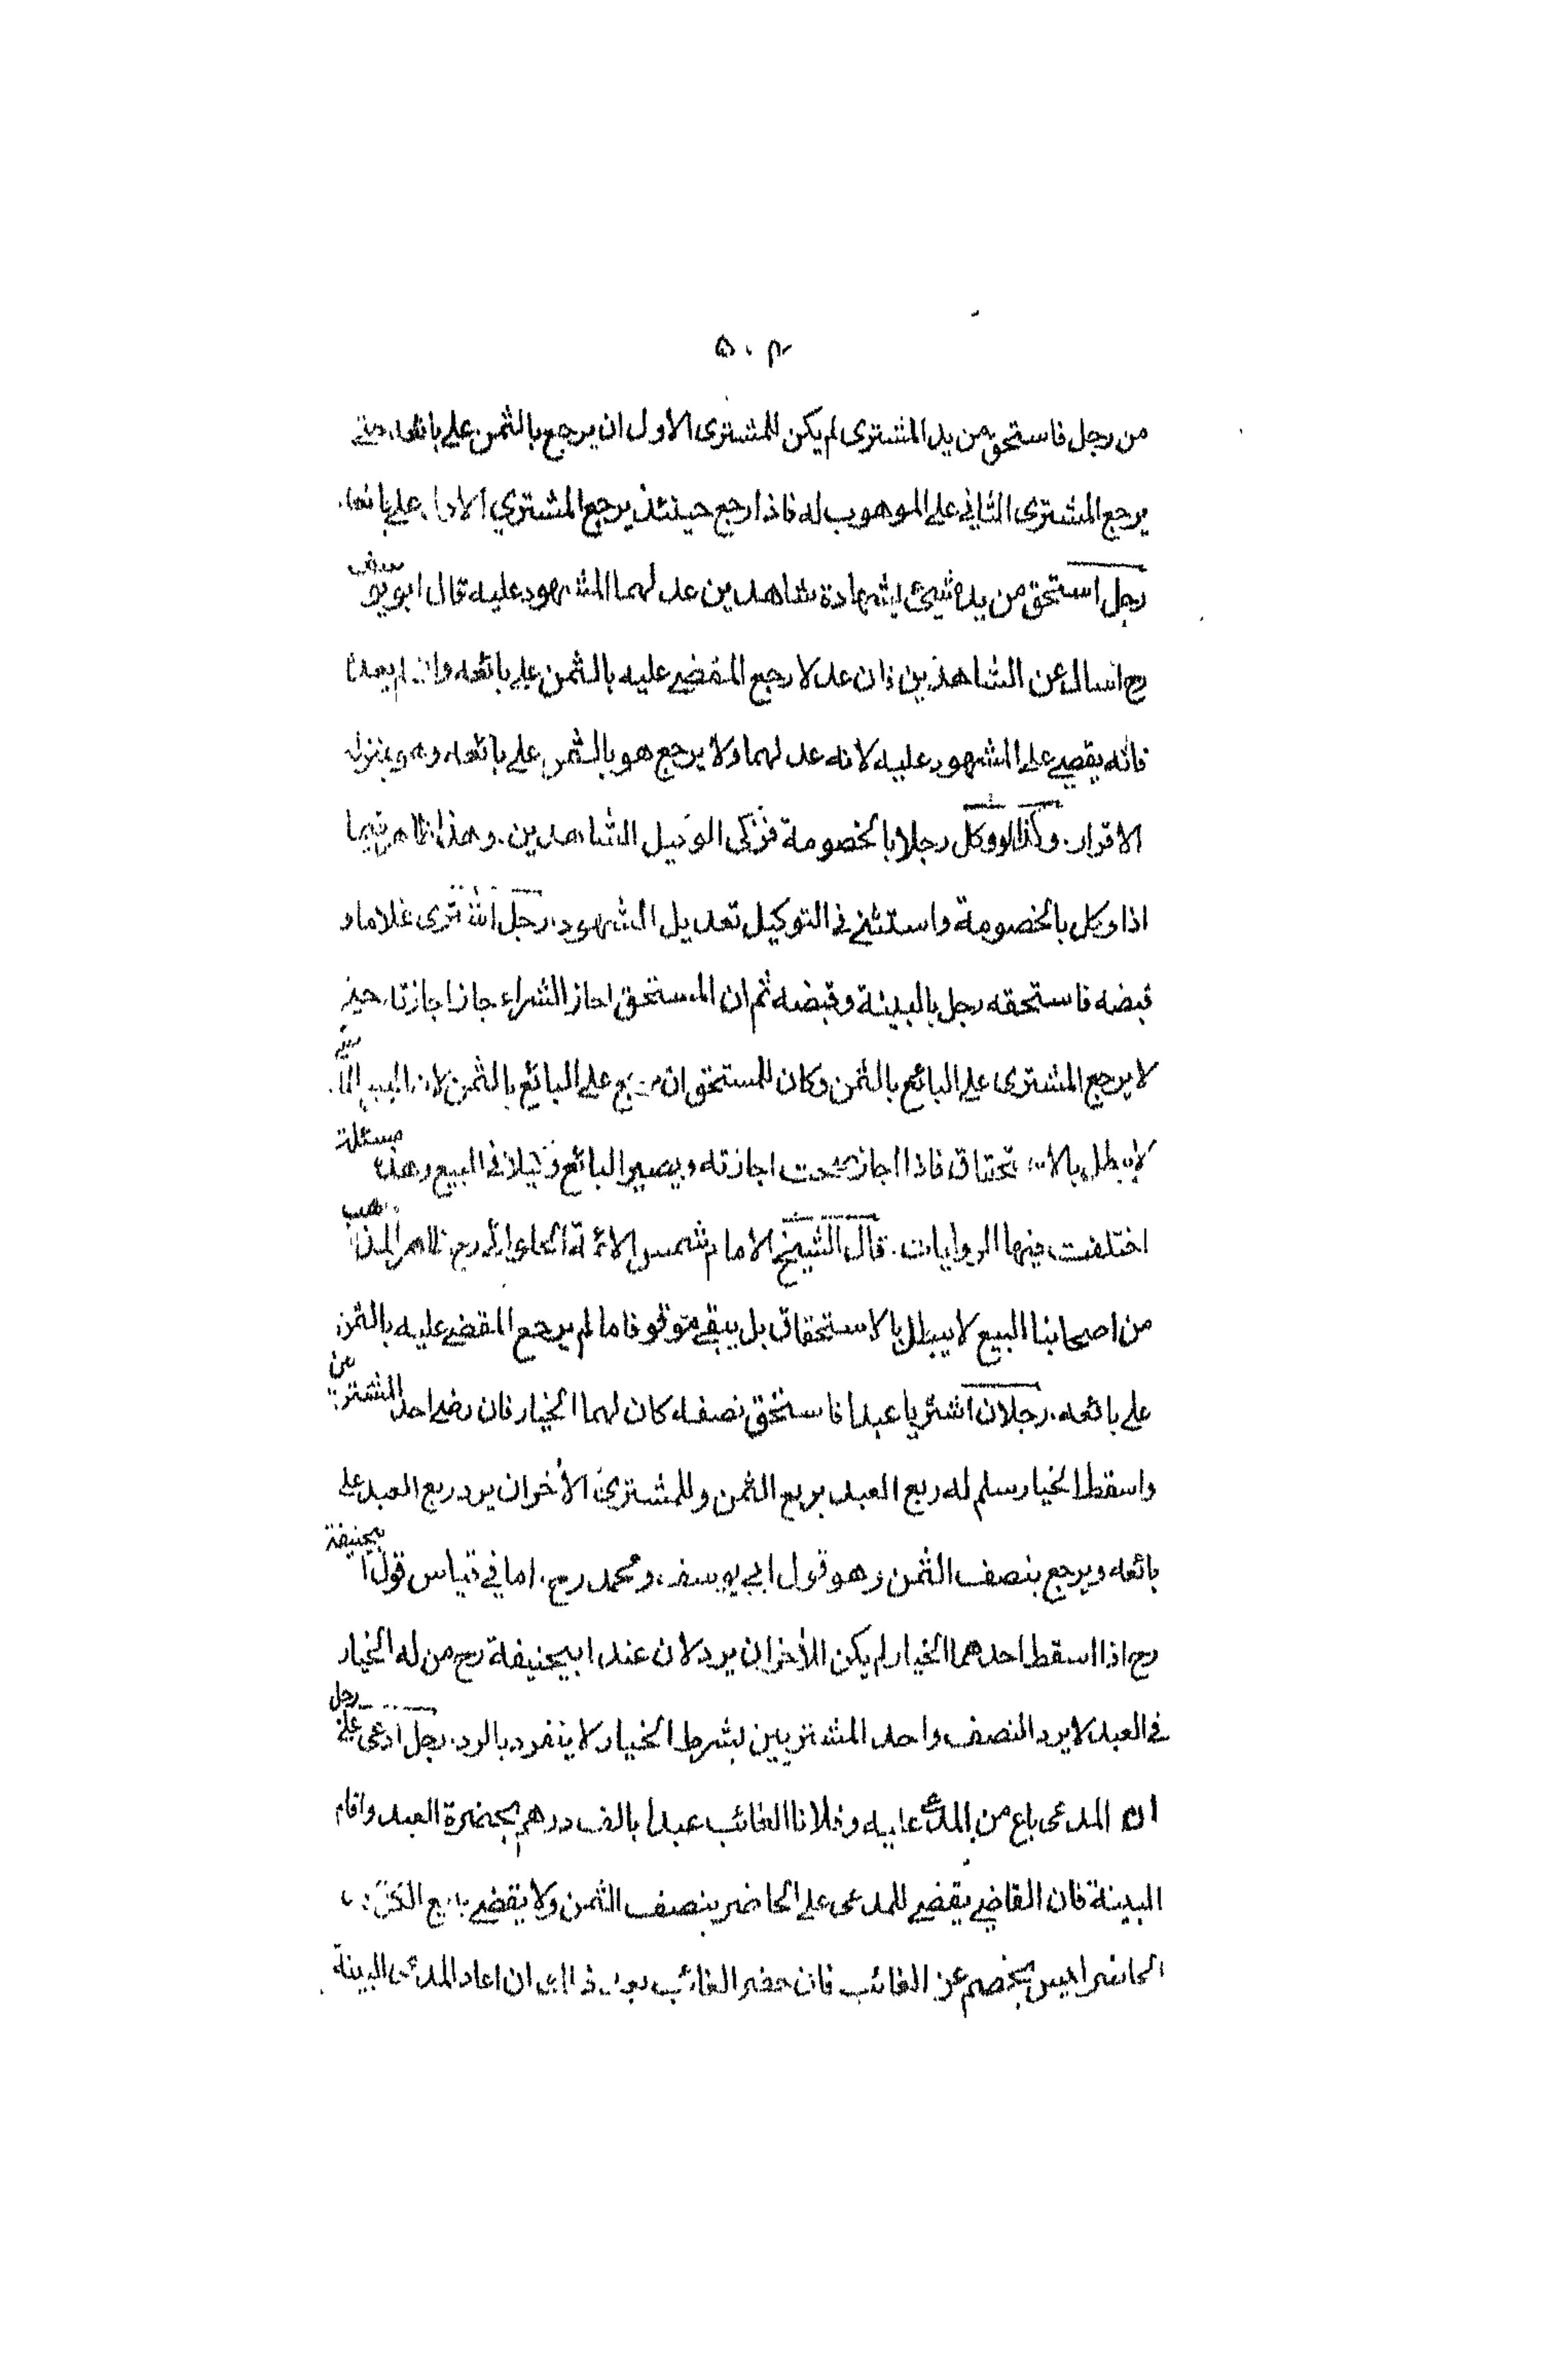 ٥٠٢
من رجل فاستحق من يد المشترى لم يكن للمشترى الاول ان يرجع بالثمن على بائعه حتى
يرجع المشترى الثانى على الموهوب له فاذا رجع حينئذ يرجع المشتري الاول على بائعه
رجل استحق من يده شيئ بشهادة شاهدين عدلهما المشهود عليه قال ابو يوسف
رح اسال عن الشاهدين فان عدلا رجع المقضي عليه بالثمن على بائعه وان لم يعدلا
فانه يقضي على المشهود عليه لانه عدلهما ولا يرجع هو بالثمن على بائعه وهو بمنزلة
الاقرار. وكذا لو وكل رجلا بالخصومة فزكى الوكيل الشاهدين. وهذا ظاهر فيما
اذا وكل بالخصومة واستثنى فى التوكيل تعديل الشهود. رجل اشترى غلاما و
قبضه فاستحقه رجل بالبينة وقبضه ثم ان المستحق اجاز الشراء جاز اجازته حتى
لا يرجع المشترى على البائع بالثمن وكان للمستحق ان يرجع على البائع بالثمن لان البيع
لا يبطل بالاستحقاق فاذا اجاز صحت اجازته ويصير البائع وكيلا فى البيع وهذه مسئلة
اختلفت فيها الروايات. قال الشيخ الامام شمس الائمة الحلوائى رح ظاهر المذهب
من اصحابنا البيع لا يبطل بالاستحقاق بل يبقى موقوفا ما لم يرجع المقضي عليه بالثمن
على بائعه. رجلان اشتريا عبدا فاستحق نصفه كان لهما الخيار فان رضى احد المشتريين
واسقط الخيار سلم له ربع العبد بربع الثمن وللمشتري الأخر ان يرد ربع العبد على
بائعه ويرجع بنصف الثمن وهو قول ابي يوسف ومحمد رح. اما في قياس قول ابيحنيفة
رح اذا اسقط احدهما الخيار لم يكن للأخر ان يرد لان عند ابيحنيفة رح من له الخيار
فى العبد لا يرد النصف واحد المشتريين بشرط الخيار لا ينفرد بالرد. رجل ادعى على رجل
ان المدعى باع من المدعى عليه وفلانا الغائب عبدا بالف درهم بحضرة العبد واقام
البينة فان القاضي يقضي للمدعى على الحاضر بنصف الثمن ولا يقضي
الحاضر ليس بخصم عن الغائب فان حضر الغائب بعد ذلك ان اعاد المدعى البينة